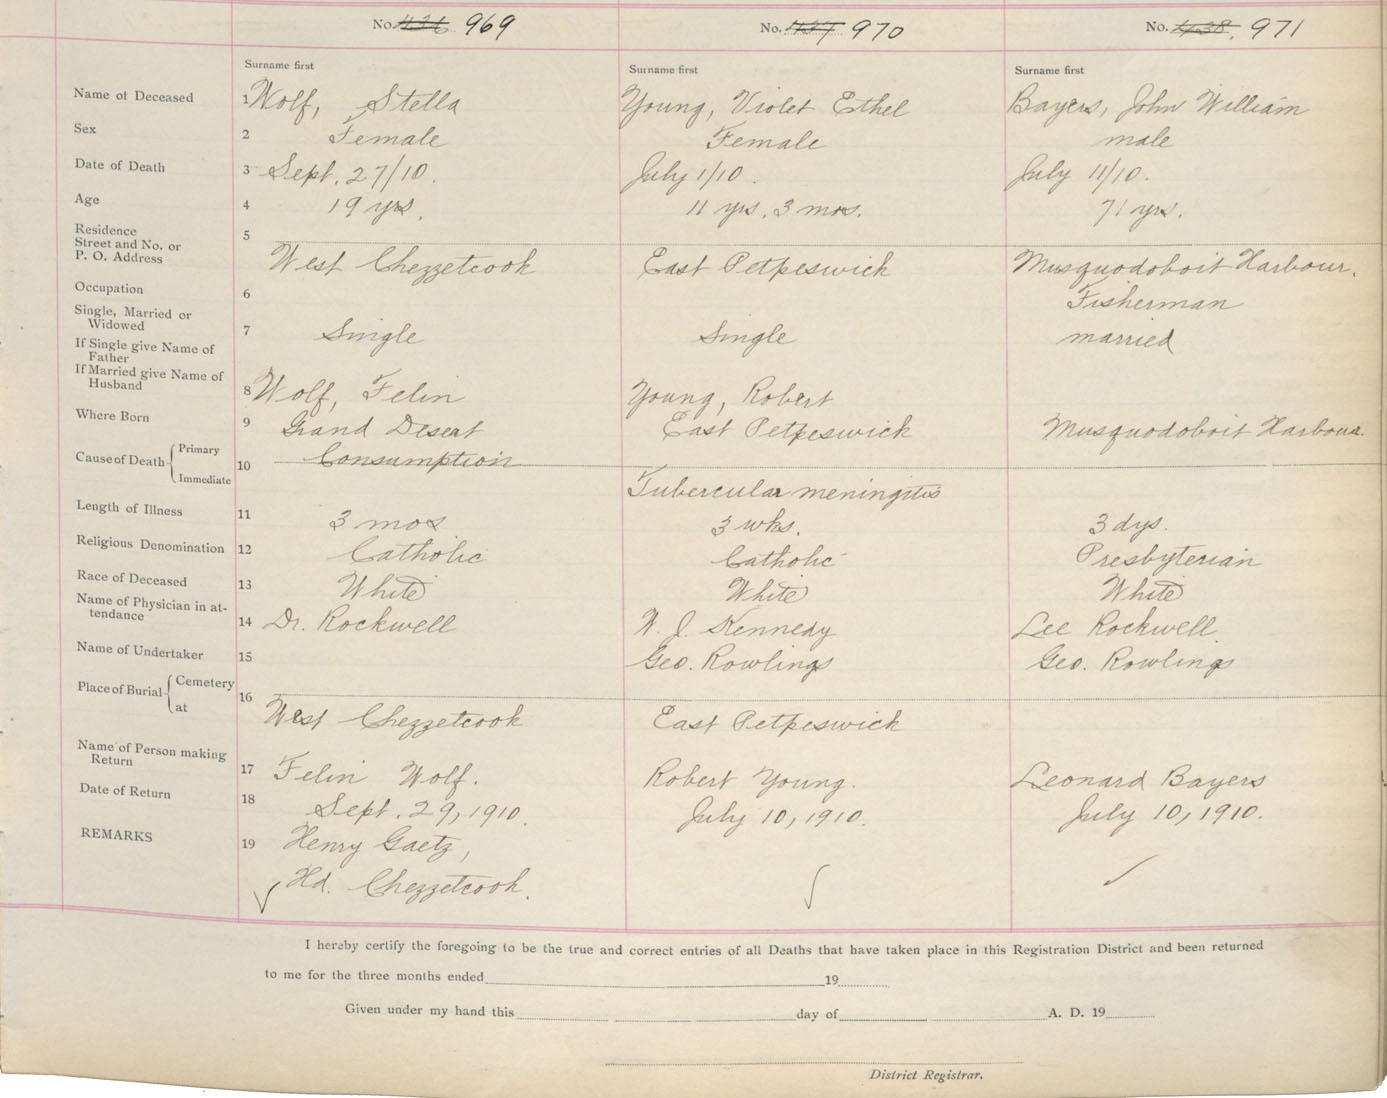 No. 436 969 No. 437 970 No. 438, 971
Surname first Surname first Surname first
Name of Deceased 1 Wolf, Stella Young, Violet Ethel Bayers, John William
Sex 2 Female Female male
Date of Death 3 Sept. 27/10. July 1/10. July 11/10.
Age 4 19 yrs. 11 yrs. 3 mos. 71 yrs.
Residence
Street and No. or 5
P. O. Address West Chezzetcook East Petpeswick Musquodoboit Harbour.
Occupation 6 Fisherman
Single, Married or
Widowed 7 Single Single married
If Single give Name of
Father
If Married give Name of
Husband 8 Wolf, Felin Young, Robert
Where Born 9 Grand Desert East Petpeswick Musquodoboit Harbour.
Cause of Death Primary 10 Consumption
Immediate Tubercular meningitis
Length of Illness 11 3 mos 3 wks. 3 dys.
Religious Denomination 12 Catholic Catholic Presbyterian
Race of Deceased 13 White White White
Name of Physician in at-
tendance 14 Dr. Rockwell W. J. Kennedy Lee Rockwell
Name of Undertaker 15 Geo. Rowlings Geo. Rowlings
Place of Burial Cemetery 16
at West Chezzetcook East Petpeswick
Name of Person making
Return 17 Felin Wolf. Robert Young. Leonard Bayers
Date of Return 18 Sept. 29, 1910. July 10, 1910. July 10, 1910.
REMARKS 19 Henry Gaetz,
Hd. Chezzetcook.
I hereby certify the foregoing to be the true and correct entries of all Deaths that have taken place in this Registration District and been returned
to me for the three months ended 19
Given under my hand this day of A. D. 19
District Registrar.